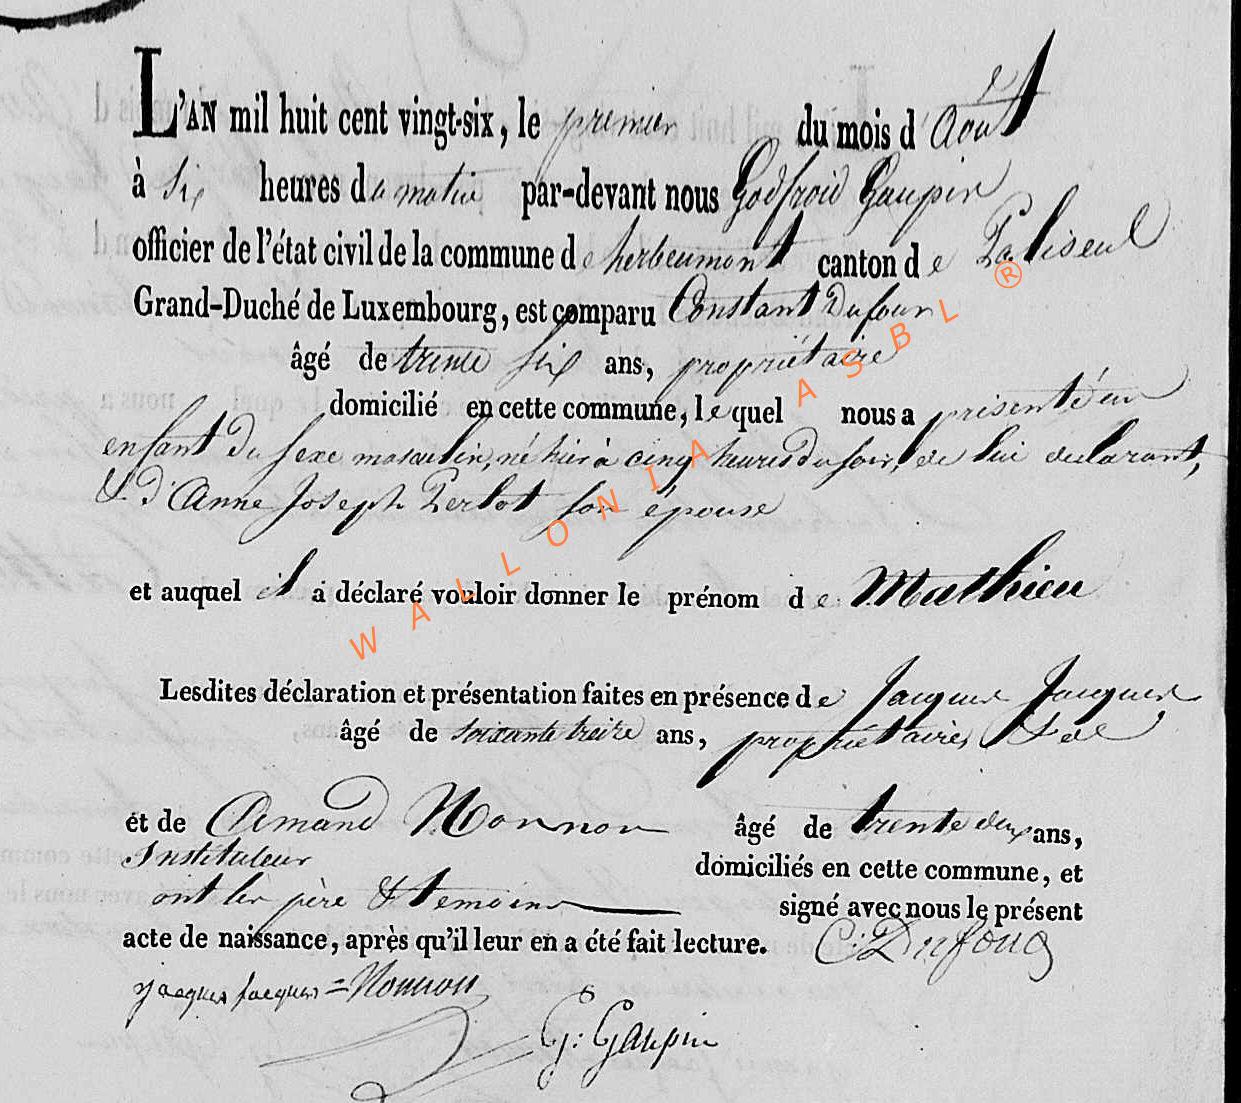 L'AN mil huit cent vingt-six, le premier du mois d'Aout
à six heures du matin par-devant nous Godfroid Gaupin
officier de l'état civil de la commune de herbeumont canton de Paliseul
Grand-Duché de Luxembourg, est comparu Constant Dufour
âgé de trente six ans, propriétaire
domicilié en cette commune, lequel nous a présenté un
enfant du sexe masculin, né hier à cinq heures du soir, de lui declarant,
& d'Anne Joseph Perlot son épouse
et auquel il a déclaré vouloir donner le prénom de Mathieu
Lesdites déclaration et présentation faites en présence de Jacques Jacques
âgé de soixante treize ans, propriétaire,
et de Amand Nonnon âgé de trente deux ans,
Instituteur
domiciliés en cette commune, et
ont les père & temoins signé avec nous le présent
acte de naissance, après qu'il leur en a été fait lecture. C: Dufour
jacques jacques = Nonnon
G: Gaupin
WALLONIA ASBL ®